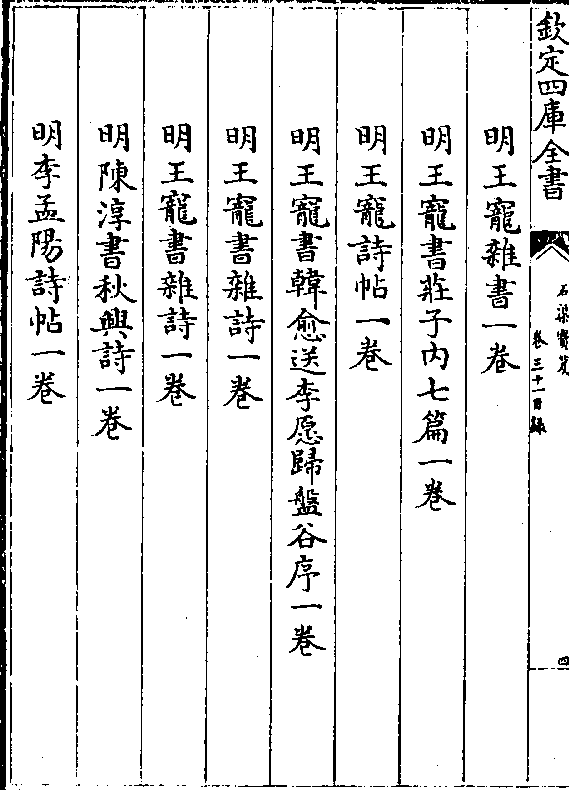 欽定四庫全書
石渠寶笈
卷三十一目録
四
明王寵雜書一卷
明王寵書莊子內七篇一卷
明王寵詩帖一卷
明王寵書韓愈送李愿歸盤谷序一卷
明王寵書雜詩一卷
明王寵書雜詩一卷
明陳淳書秋興詩一卷
明李孟陽詩帖一卷